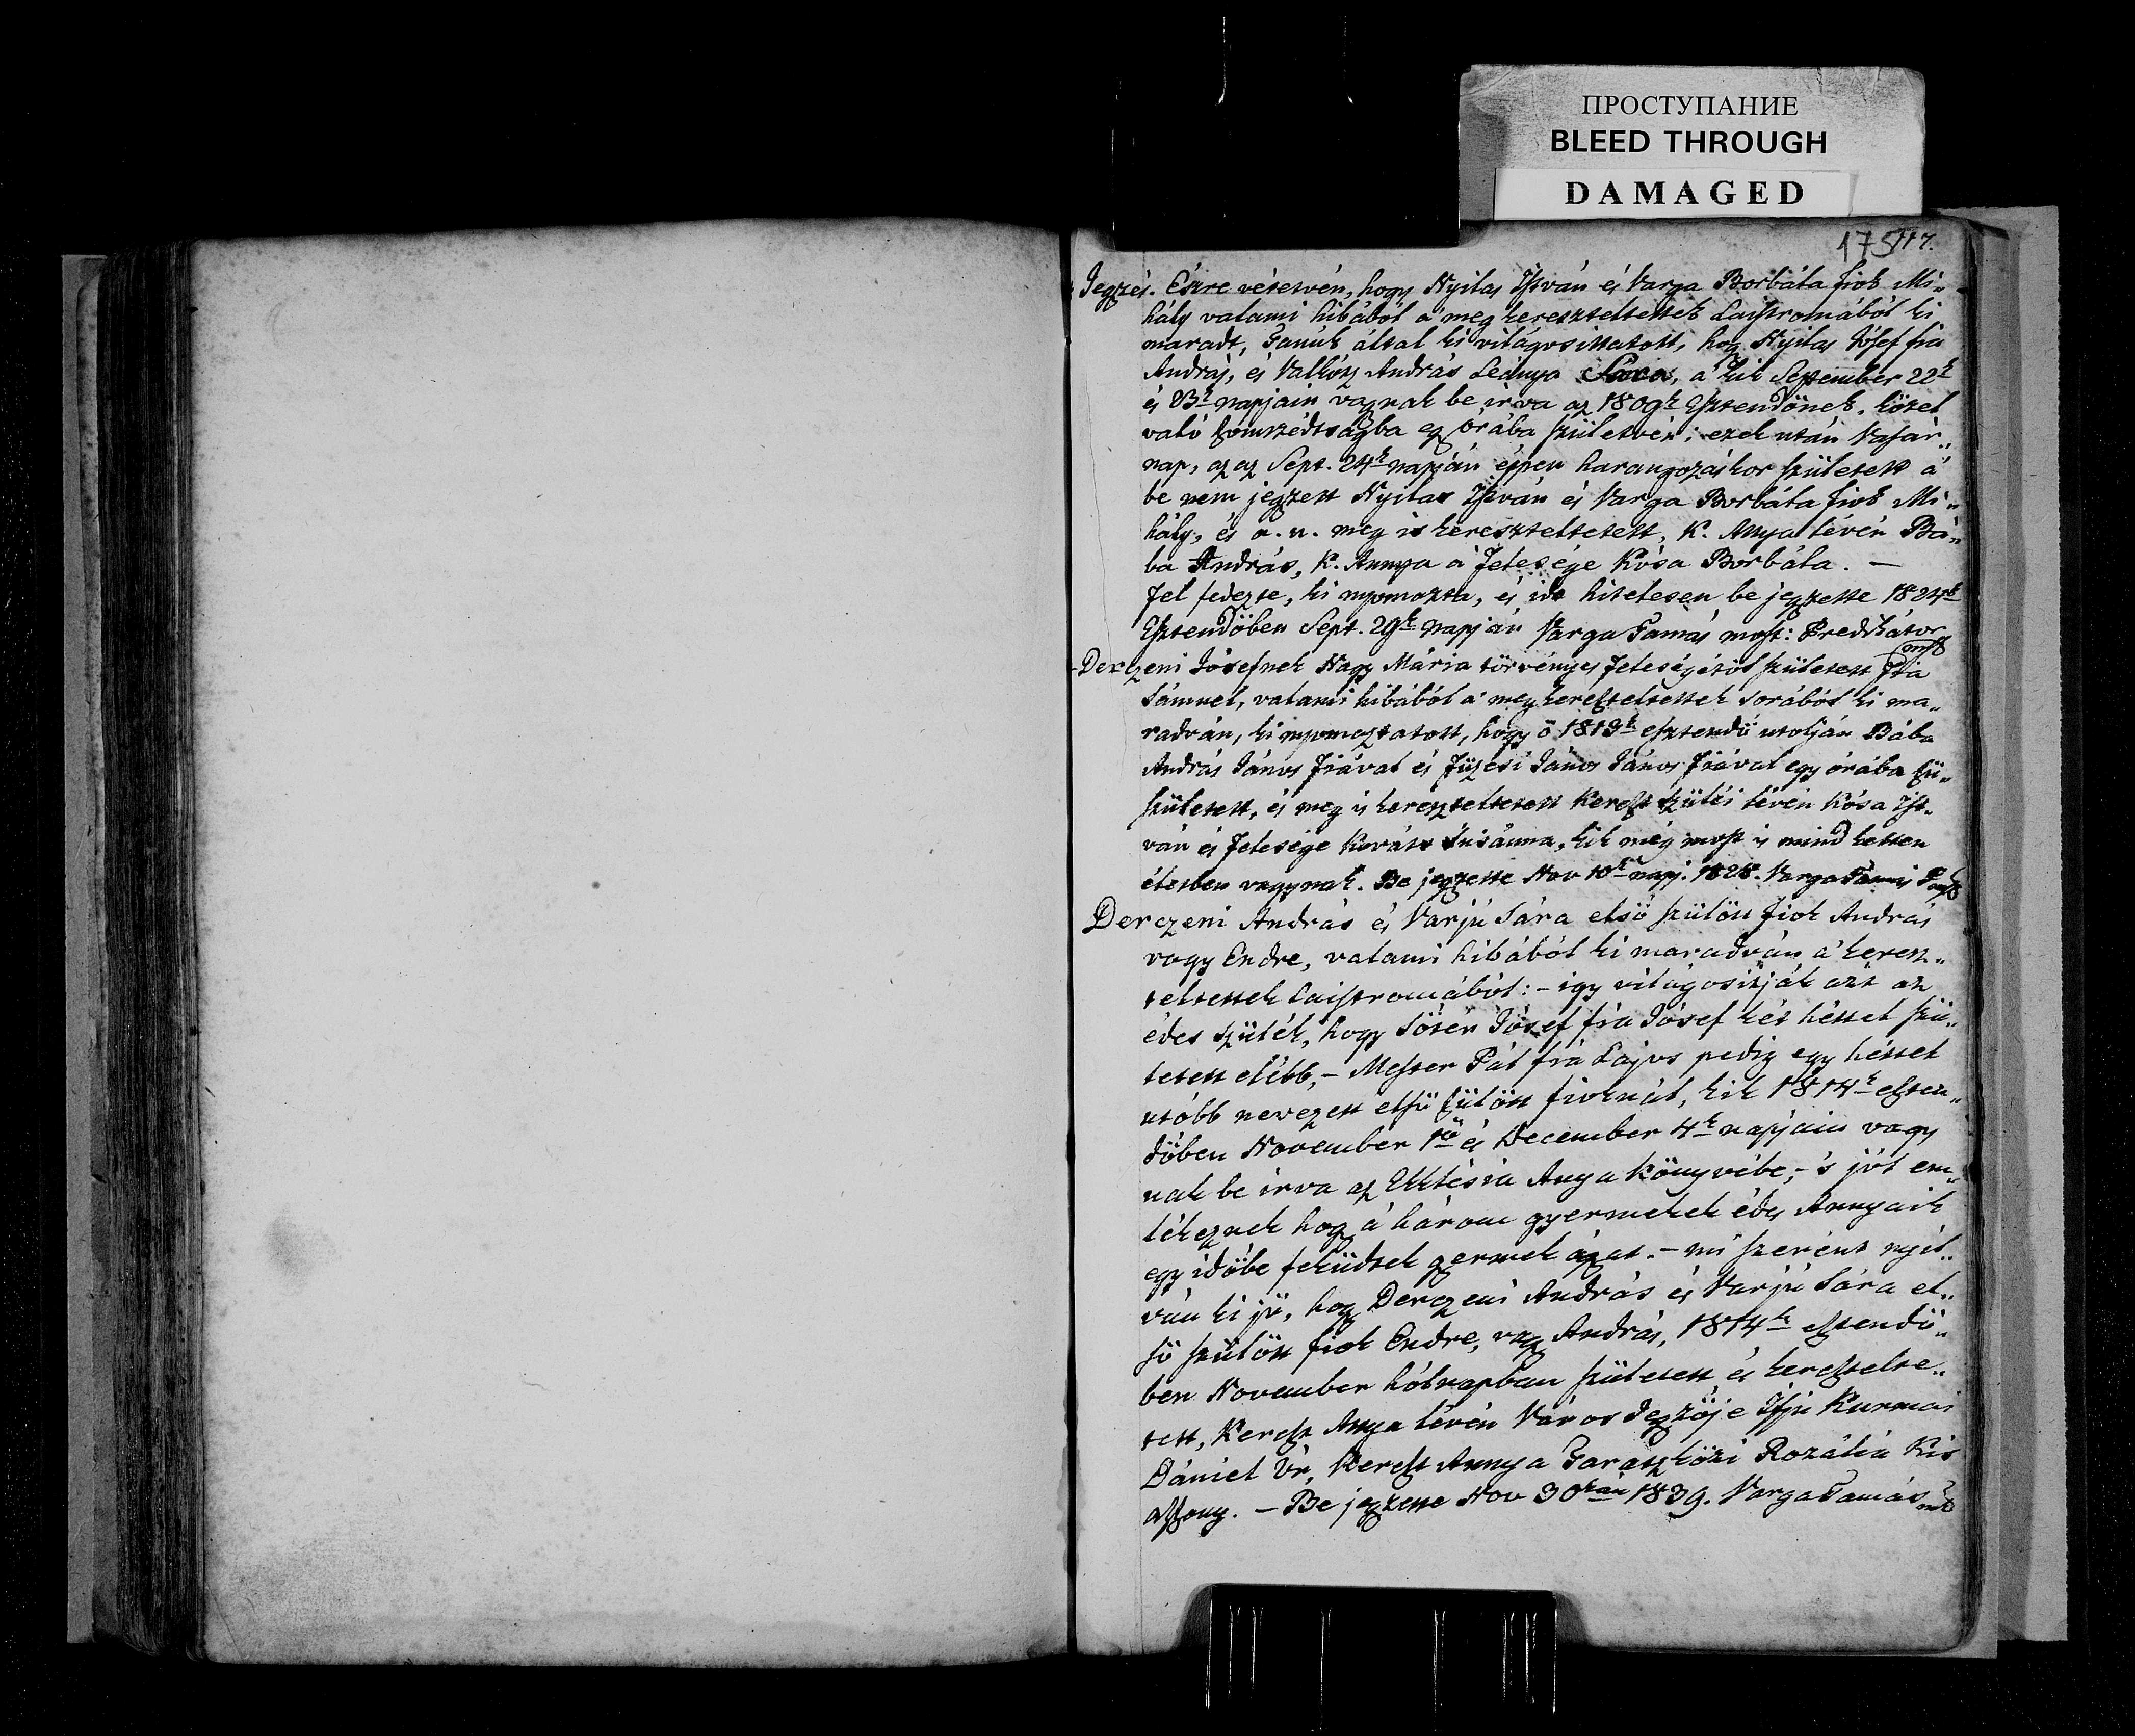 ПРОСТУПАНИЕ
BLEED THROUGH
DAMAGED
175
117.
Jegyzés. Észre vétetvén, hogy Nyilas István és Varga Borbáta fiok Mi„
hály valami hibából a' meg kereszteltettek Laistromából ki
maradt, Tanúk által ki világosittatott, hogy Nyilas Jósef fia
András, és Valkócz András Leánya Sára, a' kik September 22k
és 23k napjain vagnak be irva az 1809k Esztendőnek, közel
való szomszédságba egy órába születvén; ezek után Vasár„
nap, az az Sept. 24k napján éppen harangozáskor született a'
be nem jegyzett Nyilas István és Varga Borbáta fiok Mi„
hály, és a. n. meg is kereszteltetett, K. Attya lévén Bá„
ba András, K. Annya a' felesége Kósa Borbáta. —
Fel fedezte, ki nyomozta, és ide hitelesen be jegyzette 1824k
Esztendőben Sept. 29k napján Varga Tamás most: Predikátor
mk
Derczeni Jósefnek Nagy Mária törvényes feleségétöl született fia
Sámuel, valami hibából a' meg kereszteltettek sorából ki ma„
radván, ki nyomoztatott, hogy ö 1813k esztendő utolján Bába
András János fiával és Füzesi János János fiával egy órába szü„
született, és meg is kereszteltetett Kereszt szülei lévén Kósa Ist„
ván és felesége Kováts Susánna, kik még most is mind ketten
életben vagynak. Be jegyzette Nov 10k napj. 1828. Varga Tamás
Derczeni András és Varjú Sára első szülött fiok András
vagy Endre, valami hibából ki maradván a' keresz„
teltettek Laistromából: – igy világositják azt az
édes szülék, hogy Sötén Jósef fia Jósef két héttel szü„
letett elébb, – Mester Pál fia Lajos pedig egy héttel
utóbb nevezett elsö szülött fioknál, kik 1814k eszten„
döben November 1sö és December 4k napjain vagy
nak be irva az Ekklésia Anya Könyvébe, – 's jól em„
lékeznek hogy a' három gyermekek édes Annyaik
egy időbe feküdtek gyermek ágyat. – mi szerént nyil„
ván ki jö, hogy Derczeni András és Varjú Sára el„
sö szülött fiok Endre, vagy András, 1814k esztendö„
ben November hólnapban született és keresztelte„
tett, Kereszt Attya lévén Város Jegyzöje Ifjú Kurmai
Dániel Úr, Kereszt Annya Taraszközi Rozália Kis
Asszony. – Be jegyzette Nov 30kán 1839. Varga Tamás mk